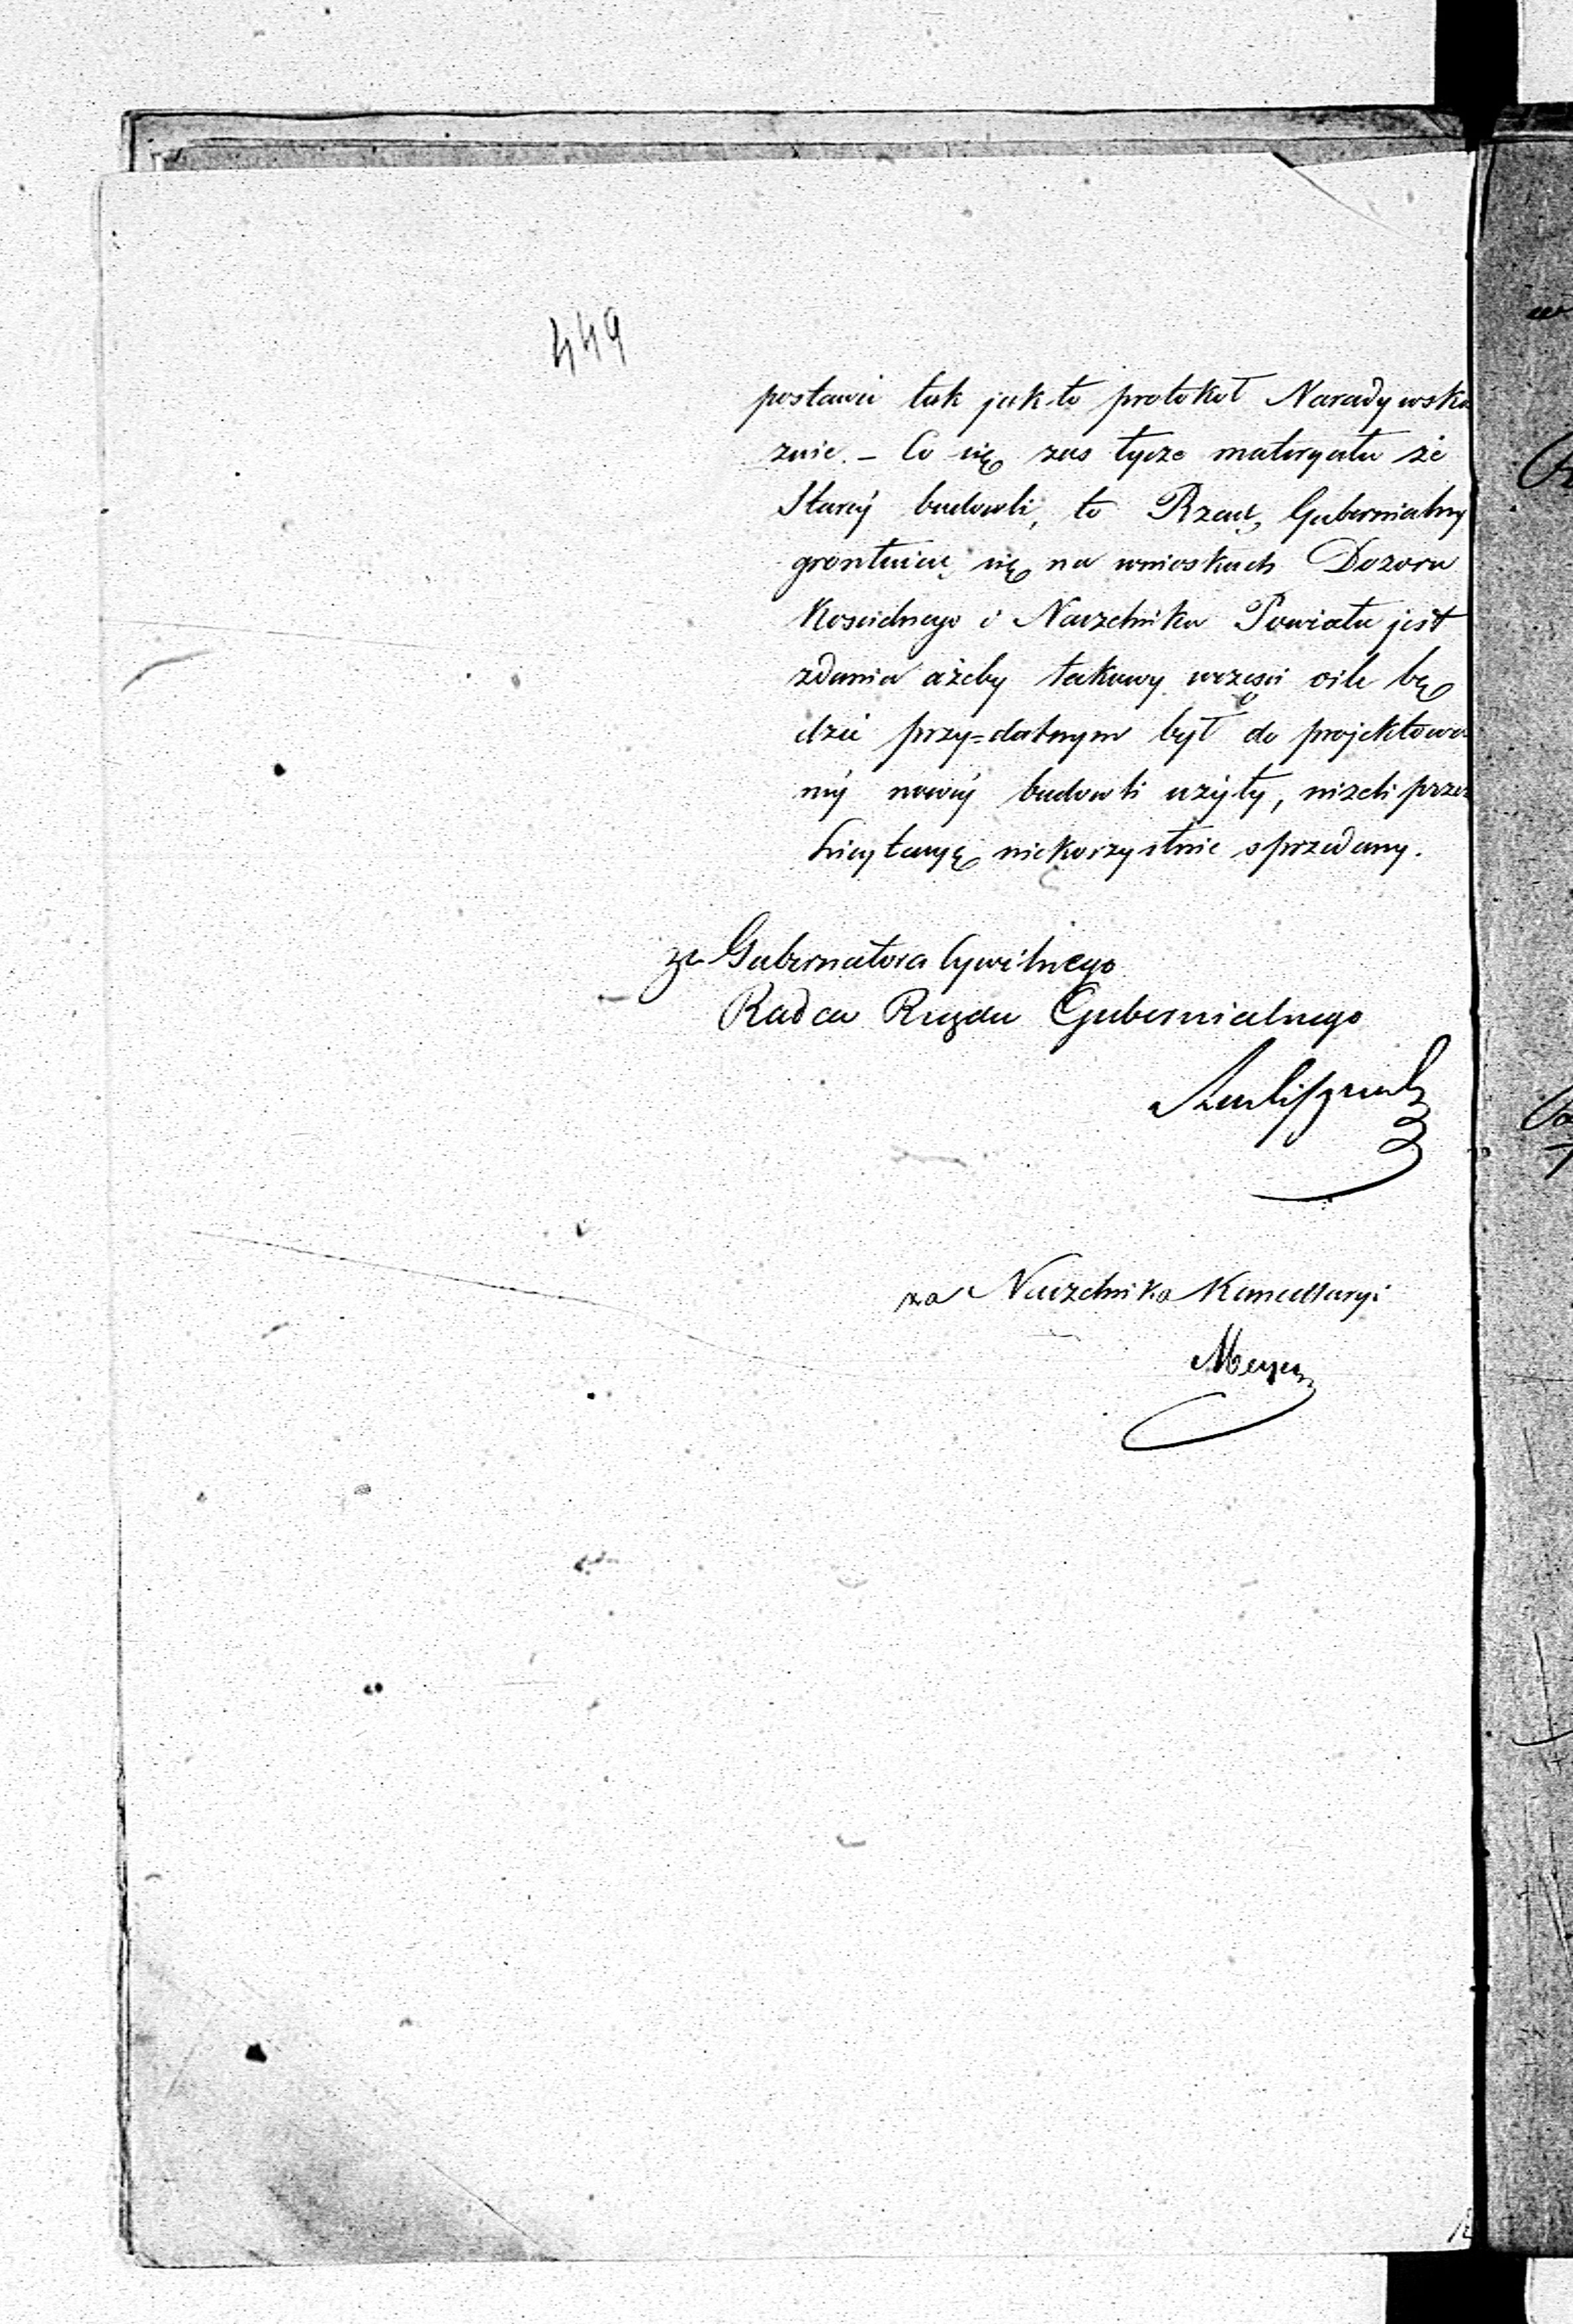 449
postawić tak jak to protokuł Narady wska
znie. – Co się zas tycze materyału ze
Starej budowli, to Rząd Gubernialny
grontując się na wnioskach Dozoru
Koscielnego i Naczelnika Powiatu jest
zdania ażeby takowy wczęsci oile bę
dzie przy=datnym był do projektowa
néj nowéj budowli użyty, nizeli przez
Licytacyę niekorzystnie sprzedany.
za Gubernatora Cywilnego
Radca Rządu Gubernialnego
za Naczelnika Kancellaryi
Meyer